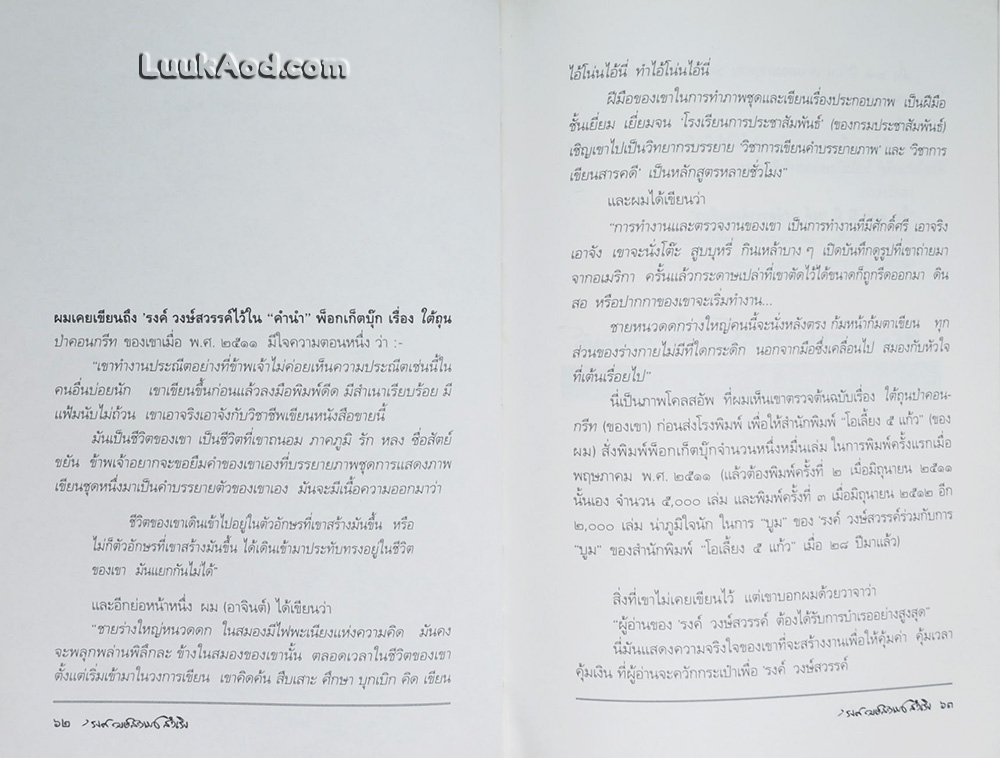 LuukAod.com
ผมเคยเขียนถึง 'รงค์ วงษ์สวรรค์ไว้ใน “คำนำ” พ็อกเก็ตบุ๊ก เรื่อง ใต้ถุน
ป่าคอนกรีท ของเขาเมื่อ พ.ศ. ๒๕๑๑ มีใจความตอนหนึ่ง ว่า :-
“เขาทำงานประณีตอย่างที่ข้าพเจ้าไม่ค่อยเห็นความประณีตเช่นนี้ใน
คนอื่นบ่อยนัก เขาเขียนขึ้นก่อนแล้วลงมือพิมพ์ดีด มีสำเนาเรียบร้อย มี
แฟ้มนับไม่ถ้วน เขาเอาจริงเอาจังกับวิชาชีพเขียนหนังสือขายนี้
มันเป็นชีวิตของเขา เป็นชีวิตที่เขาถนอม ภาคภูมิ รัก หลง ซื่อสัตย์
ขยัน ข้าพเจ้าอยากจะขอยืมคำของเขาเองที่บรรยายภาพชุดการแสดงภาพ
เขียนชุดหนึ่งมาเป็นคำบรรยายตัวของเขาเอง มันจะมีเนื้อความออกมาว่า
ชีวิตของเขาเดินเข้าไปอยู่ในตัวอักษรที่เขาสร้างมันขึ้น หรือ
ไม่ก็ตัวอักษรที่เขาสร้างมันขึ้น ได้เดินเข้ามาประทับทรงอยู่ในชีวิต
ของเขา มันแยกกันไม่ได้”
และอีกย่อหน้าหนึ่ง ผม (อาจินต์) ได้เขียนว่า
“ชายร่างใหญ่หนวดดก ในสมองมีไฟพะเนียงแห่งความคิด มันคง
จะพลุกพล่านพิลึกละ ข้างในสมองของเขานั้น ตลอดเวลาในชีวิตของเขา
ตั้งแต่เริ่มเข้ามาในวงการเขียน เขาคิดค้น สืบเสาะ ศึกษา บุกเบิก คิด เขียน
๖๒
ไอ้โน่นไอ้นี่ ทำไอ้โน่นไอ้นี่
ฝีมือของเขาในการทำภาพชุดและเขียนเรื่องประกอบภาพ เป็นฝีมือ
ชั้นเยี่ยม เยี่ยมจน 'โรงเรียนการประชาสัมพันธ์' (ของกรมประชาสัมพันธ์)
เชิญเขาไปเป็นวิทยากรบรรยาย 'วิชาการเขียนคำบรรยายภาพ' และ 'วิชาการ
เขียนสารคดี' เป็นหลักสูตรหลายชั่วโมง”
และผมได้เขียนว่า
“การทำงานและตรวจงานของเขา เป็นการทำงานที่มีศักดิ์ศรี เอาจริง
เอาจัง เขาจะนั่งโต๊ะ สูบบุหรี่ กินเหล้าบาง ๆ เปิดบันทึกดูรูปที่เขาถ่ายมา
จากอเมริกา ครั้นแล้วกระดาษเปล่าที่เขาตัดไว้ได้ขนาดก็ถูกรีดออกมา ดิน
สอ หรือปากกาของเขาจะเริ่มทำงาน...
ชายหนวดดกร่างใหญ่คนนี้จะนั่งหลังตรง ก้มหน้าก้มตาเขียน ทุก
ส่วนของร่างกายไม่มีที่ใดกระดิก นอกจากมือซึ่งเคลื่อนไป สมองกับหัวใจ
ที่เต้นเรื่อยไป”
นี่เป็นภาพโคลสอัพ ที่ผมเห็นเขาตรวจต้นฉบับเรื่อง ใต้ถุนป่าคอน-
กรีท (ของเขา) ก่อนส่งโรงพิมพ์ เพื่อให้สำนักพิมพ์ “โอเลี้ยง ๕ แก้ว” (ของ
ผม) สั่งพิมพ์พ็อกเก็ตบุ๊กจำนวนหนึ่งหมื่นเล่ม ในการพิมพ์ครั้งแรกเมื่อ
พฤษภาคม พ.ศ. ๒๕๑๑ (แล้วต้องพิมพ์ครั้งที่ ๒ เมื่อมิถุนายน ๒๕๑๑
นั้นเอง จำนวน ๕,๐๐๐ เล่ม และพิมพ์ครั้งที่ ๓ เมื่อมิถุนายน ๒๕๑๒ อีก
๒,๐๐๐ เล่ม น่าภูมิใจนัก ในการ “บูม” ของ 'รงค์ วงษ์สวรรค์ร่วมกับการ
“บูม” ของสำนักพิมพ์ “โอเลี้ยง ๕ แก้ว” เมื่อ ๒๘ ปีมาแล้ว)
สิ่งที่เขาไม่เคยเขียนไว้ แต่เขาบอกผมด้วยวาจาว่า
“ผู้อ่านของ 'รงค์ วงษ์สวรรค์ ต้องได้รับการบำเรออย่างสูงสุด”
นี่มันแสดงความจริงใจของเขาที่จะสร้างงานเพื่อให้คุ้มค่า คุ้มเวลา
คุ้มเงิน ที่ผู้อ่านจะควักกระเป๋าเพื่อ 'รงค์ วงษ์สวรรค์
๖๓